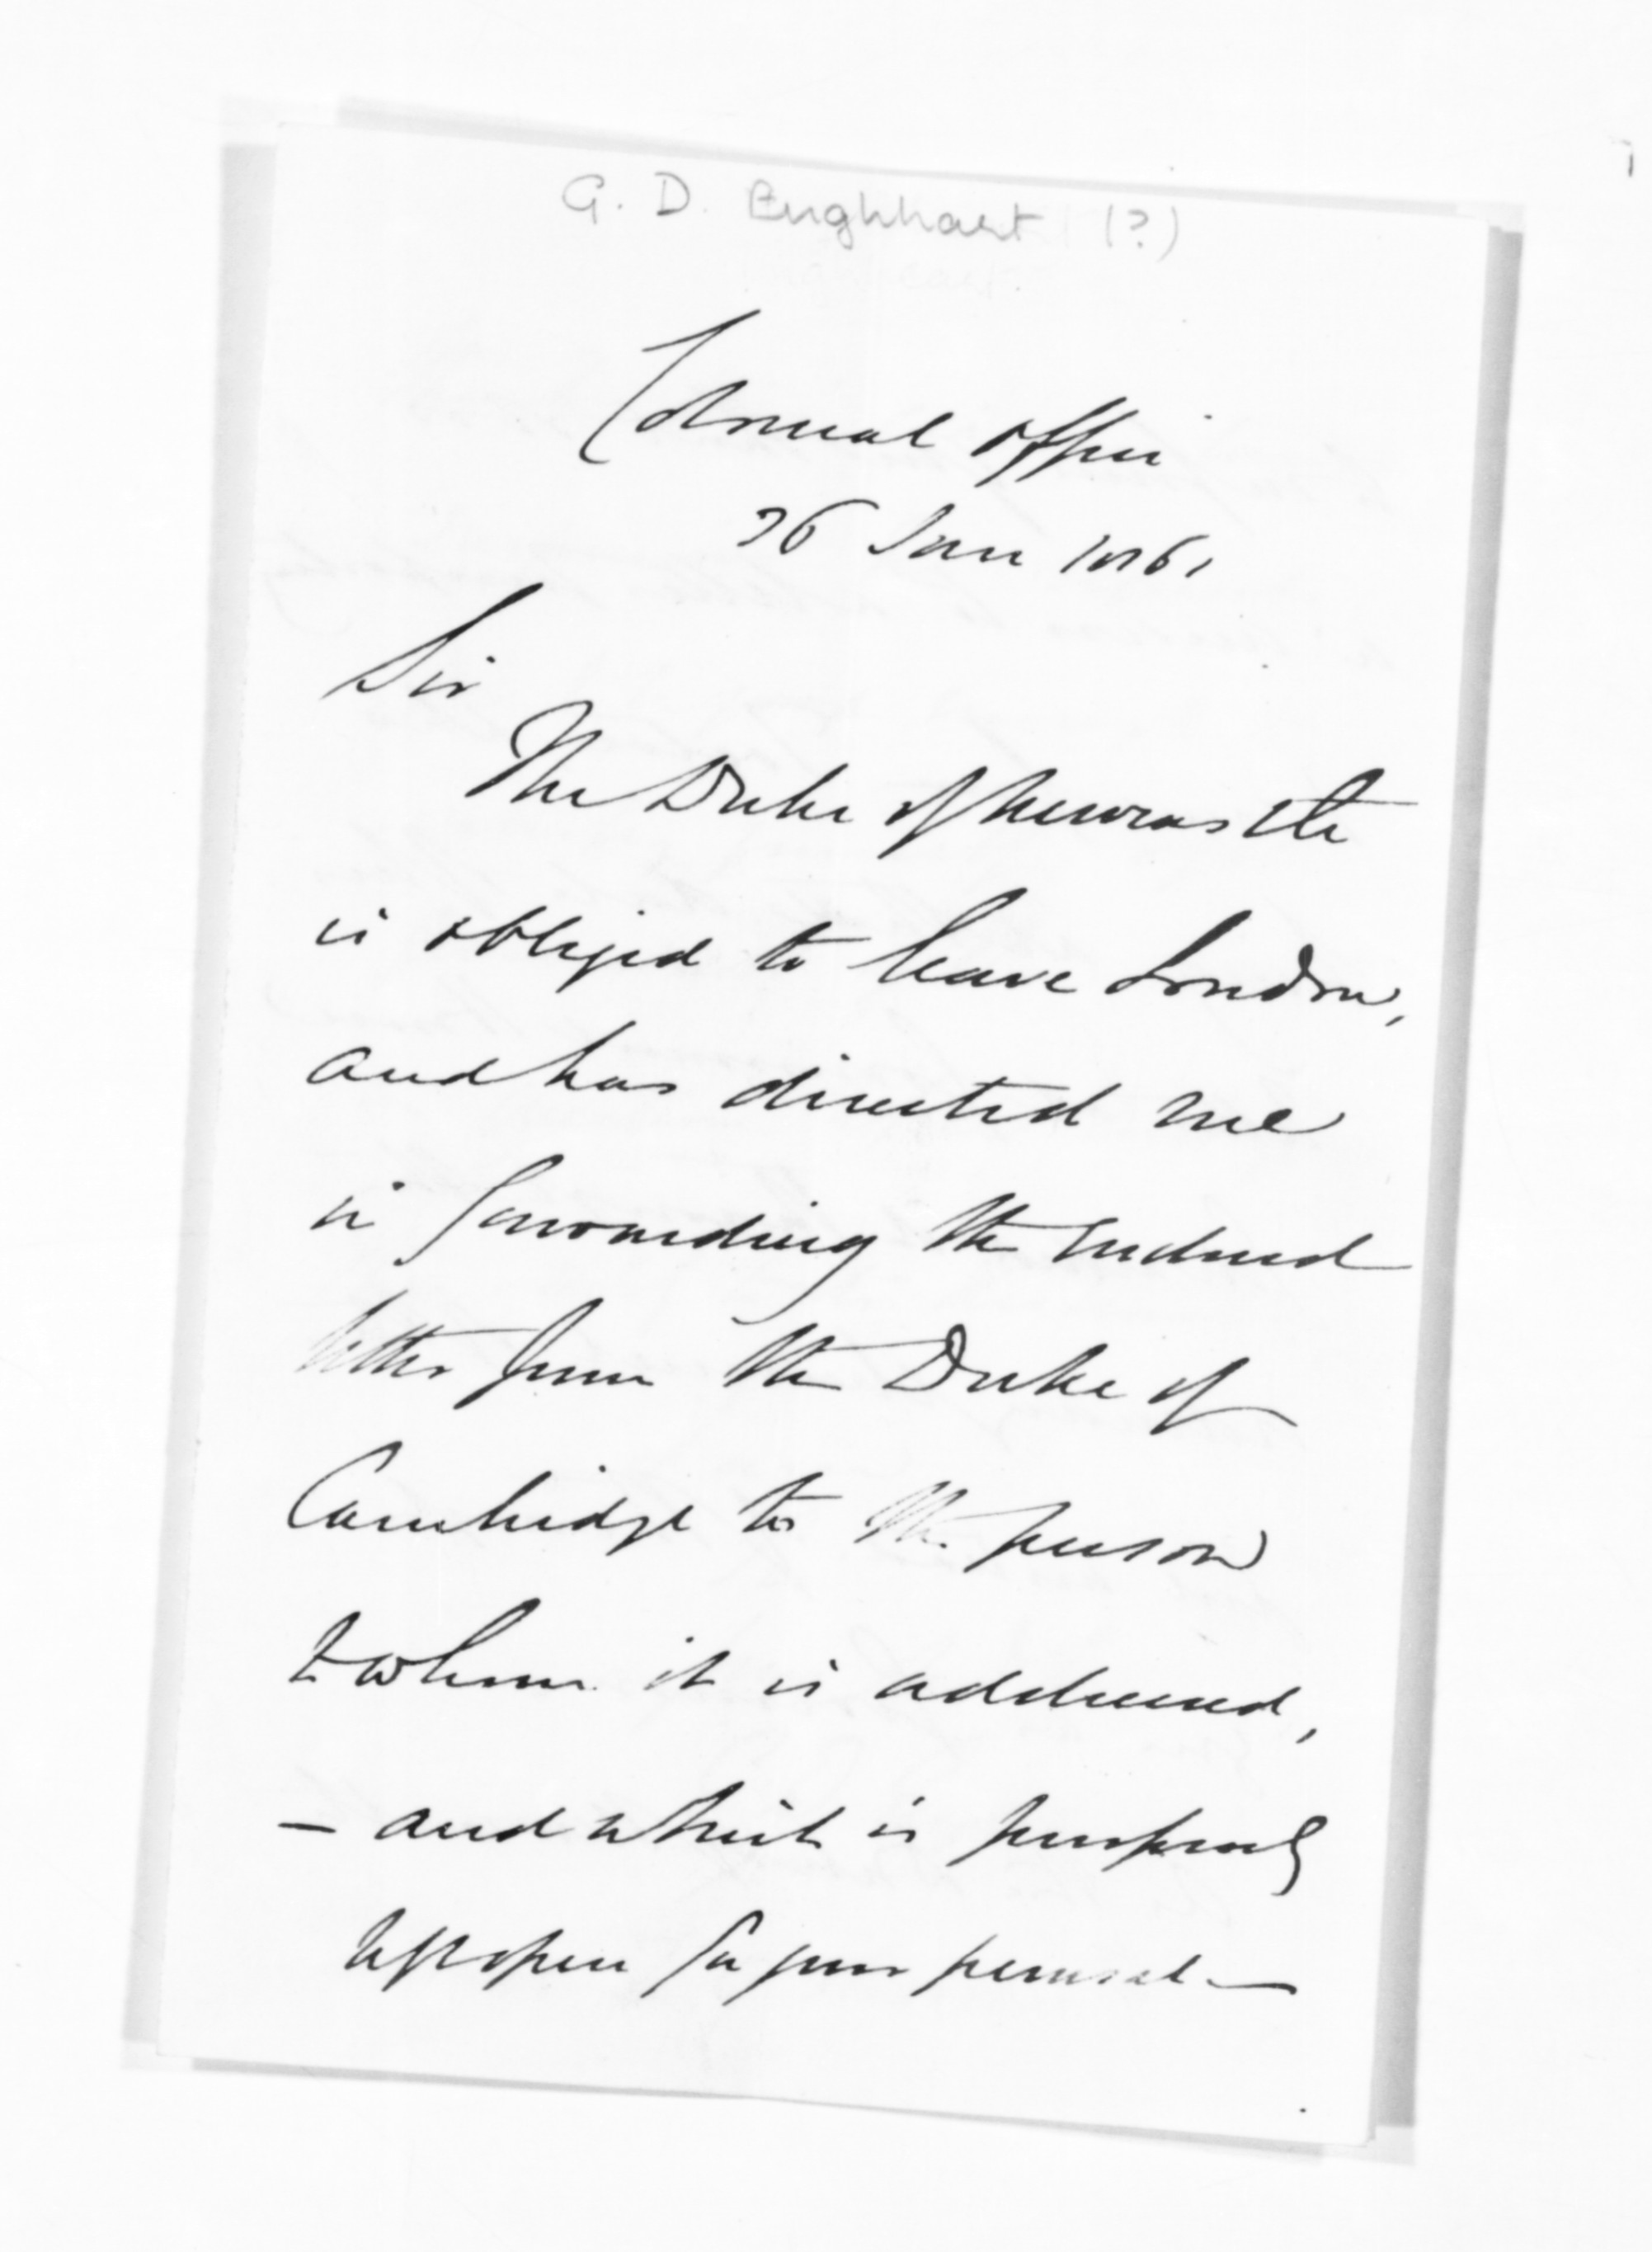 G. D. Enghhart (?)
Colonial Office
26 Jan 1861
Sir
The Duke of Newcastle
is obliged to leave London,
and has directed me
in forwarding the enclosed
letter from the Duke of
Cambridge to the person
to whom it is addressed,
– and which is purposely
left open for your perusal –